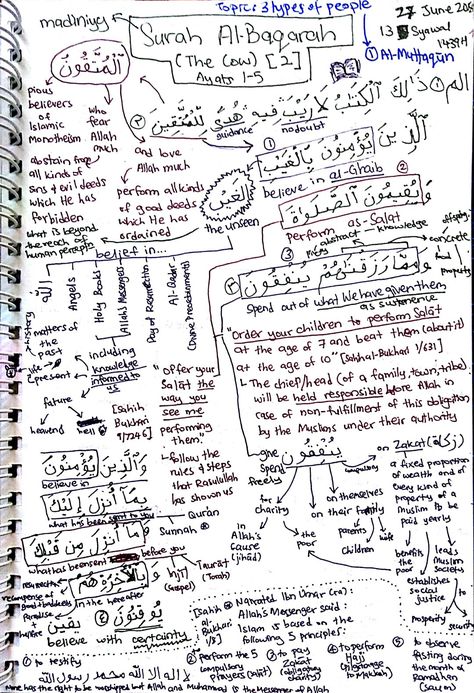 Topic: 3 types of people
madiniyy
27 June
13 Syawal
1439H
Surah Al-Baqarah
(The Cow) [2]
Ayats 1-5
① Al-Muttaqun
ٱلْمُتَّقُونَ
الم ① ذَٰلِكَ ٱلْكِتَٰبُ لَا رَيْبَ فِيهِ هُدًى لِّلْمُتَّقِينَ ②
guidance
no doubt
pious
believers
of
Islamic
Monotheism
who
fear
Allah
much
abstain from
all kinds of
sins & evil deeds
which He has
forbidden
and love
Allah much
perform all kinds
of good deeds
which He has
ordained
①
ٱلَّذِينَ يُؤْمِنُونَ بِٱلْغَيْبِ
believe in al-Ghaib
ٱلْغَيْب
the unseen
what is beyond
the reach of
human perception
②
وَيُقِيمُونَ ٱلصَّلَوٰةَ
perform as-Salat
abstract
knowledge
concrete
property
③
وَمِمَّا رَزَقْنَٰهُمْ يُنفِقُونَ ③
spend out of what We have given them
as sustenance
belief in...
الله
Angels
Holy Books
(Allah's) Messengers
Day of Resurrection
Al-Qadar
(Divine Preordainments)
history
matters of
the past
present
future
heavens
hell
including
knowledge
informed to
us
[Sahih
Bukhari
9/7246]
"offer your
Salat the
way you
see me
performing
them"
- follow the
rules & steps
that Rasulullah
has shown us
"Order your children to perform Salat
at the age of 7 and beat them (about it)
at the age of 10" [Sahih al-Bukhari 1/631]
- The chief/head (of a family, town, tribe)
will be held responsible before Allah in
case of non-fulfillment of this obligation
by the Muslims under their authority
يُنفِقُونَ
give
spend
freely
for
charity
in
Allah's
cause
(jihad)
the
poor
on themselves
on their family
parents
children
wife
compulsory
on Zakat (زكاة)
a fixed proportion
of wealth and of
every kind of
property of a
Muslim to be
paid yearly
benefits
the
poor
leads
Muslim
societies
establishes
social
justice
to
prosperity
security
وَٱلَّذِينَ يُؤْمِنُونَ
believe in
بِمَآ أُنزِلَ إِلَيْكَ
what has been sent to you
Qur'an
Sunnah
وَمَآ أُنزِلَ مِن قَبْلِكَ
what has been sent
before you
Taurat
(Torah)
Injil
(Gospel)
وَبِٱلْءَاخِرَةِ هُمْ
in the hereafter
resurrection
recompense of
good & bad deeds
Paradise
hellfire
يُوقِنُونَ ④
يقين
believe with certainty
[Sahih
al-
Bukhari
1/8]
Narrated Ibn Umar (ra):
Allah's Messenger said:
Islam is based on the
following 5 principles:
① to testify
لا إله إلا الله محمد رسول الله
None has the right to be worshipped but Allah and Muhammad is the Messenger of Allah
② perform the 5
compulsory
prayers (Salat)
③ to pay
Zakat
(obligatory
charity)
④ to perform
Hajj
(pilgrimage
to Makkah)
⑤ to observe
fasting during
the month of
Ramadhan
(Saum)